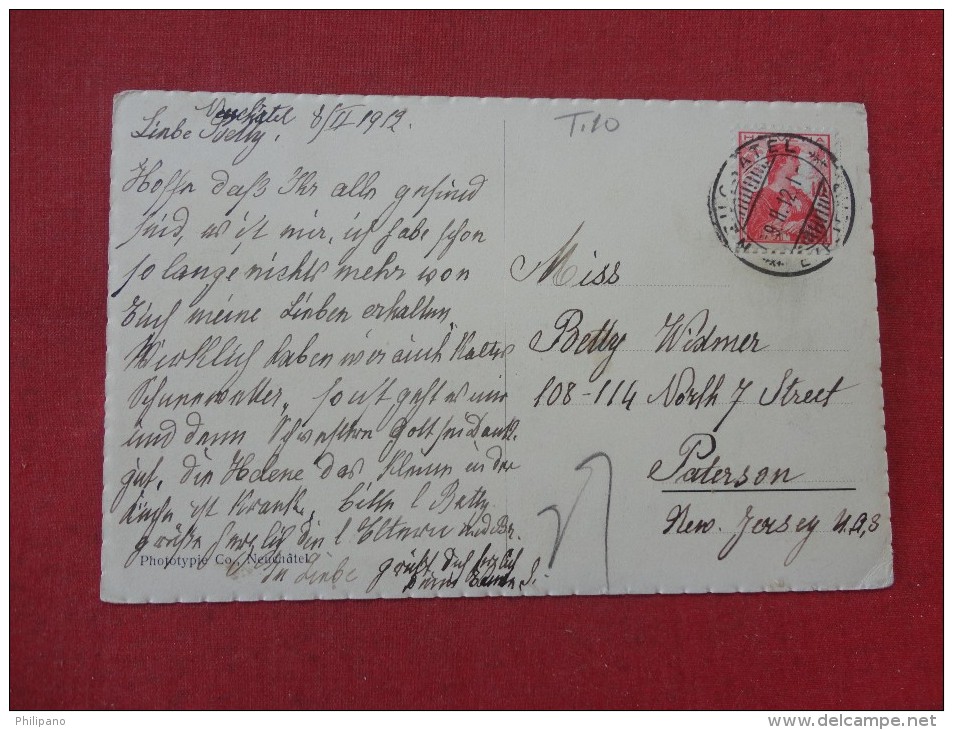 Neuchâtel 8/II 1912.
Liebe Betty,
Hoffe daß Ihr alle gesund
sind, wie ich mir, ich habe schon
so lange nichts mehr von
Euch meine Lieben erhalten,
Wirklich haben wir auch kaltes
so ist geht es mir
und den Schwestern Gott sei Dank
gut, die Helene das in der
ist krank, bitte l. Betty
grüße herzlich die l. Eltern und
In Liebe grüßt Dich herzlich
Phototypie Co., Neuchâtel
T.10
NEUCHATEL
9.II.12
Miss
Betty Widmer
108-114 North 7 Street
Paterson
New. Jersey U.A,S
Philipano
www.delcampe.net